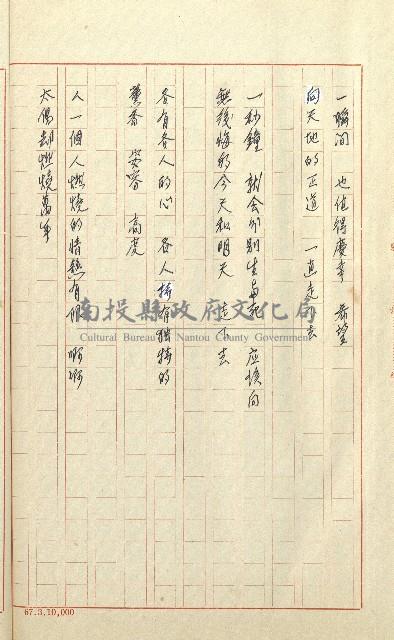 一瞬间 也值得慶幸 希望
向天地的正道 一直走下去
一秒鐘 就会分别生與死 应该向
無後悔的今天和明天 走下去
各有各人的心 各人擁有独特的
薰香 音 高度
人一個人燃燒的情熱有何 啊啊
太陽却燃燒萬年
南投縣政府文化局
Cultural Bureau of Nantou County Government
67.3.10,000